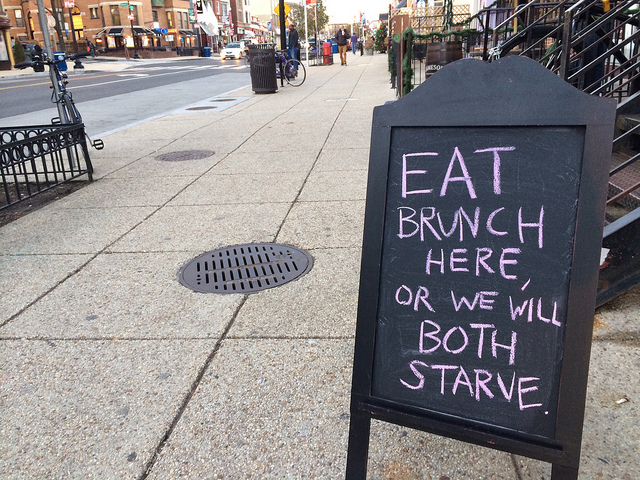 EAT
BRUNCH
HERE,
OR WE WILL
BOTH
STARVE.